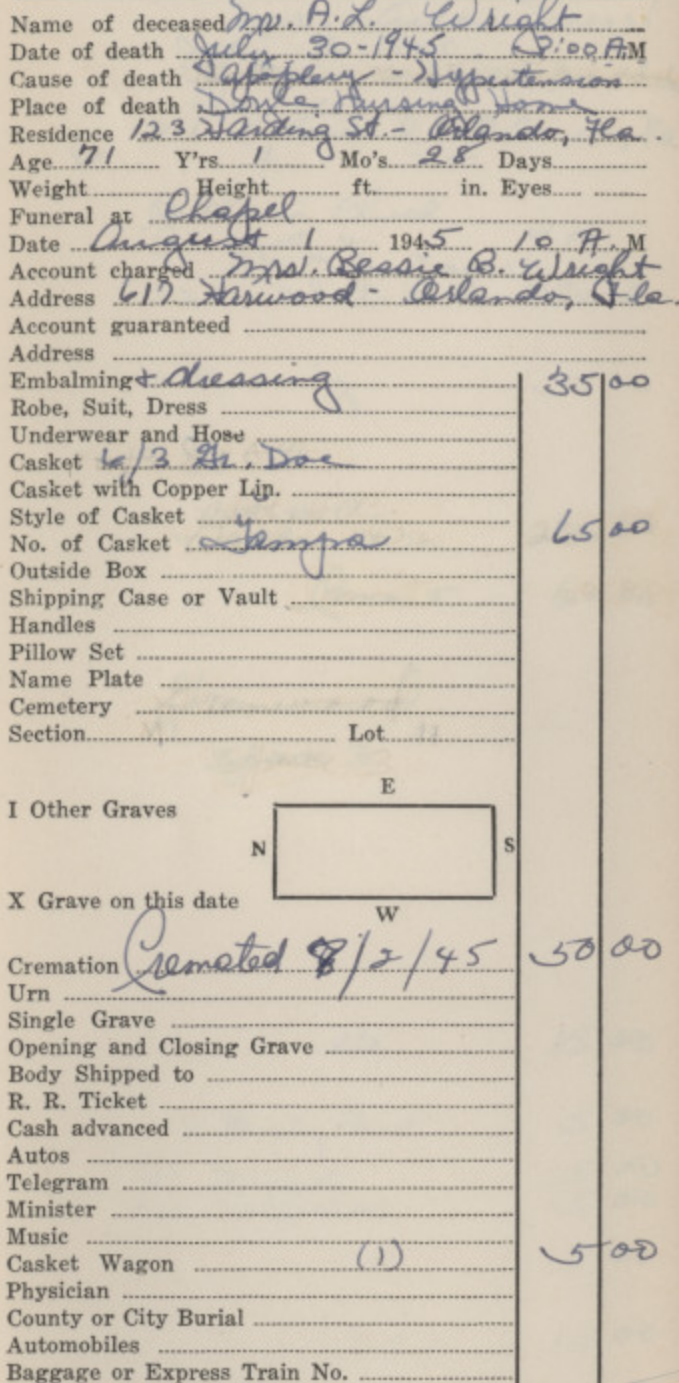 Name of deceased Mr. A.L. Wright
Date of death July 30-1945 8:00 A.M
Cause of death Apoplexy - Hypertension
Place of death Nursing Home
Residence 123 Harding St.- Orlando, Fla.
Age 71 Y'rs 1 Mo's 28 Days
Weight Height ft. in. Eyes
Funeral at Chapel
Date August 1 1945 10 A. M
Account charged Mrs. Bessie B. Wright
Address 617 Harwood - Orlando, Fla.
Account guaranteed
Address
Embalming & dressing 35 00
Robe, Suit, Dress
Underwear and Hose
Casket 6/3 Gr. Doe
Casket with Copper Lin.
Style of Casket
No. of Casket Tampa 65 00
Outside Box
Shipping Case or Vault
Handles
Pillow Set
Name Plate
Cemetery
Section Lot
E
I Other Graves
N S
X Grave on this date
W
Cremation Cremated 8/2/45 50 00
Urn
Single Grave
Opening and Closing Grave
Body Shipped to
R. R. Ticket
Cash advanced
Autos
Telegram
Minister
Music
Casket Wagon (1) 5 00
Physician
County or City Burial
Automobiles
Baggage or Express Train No.